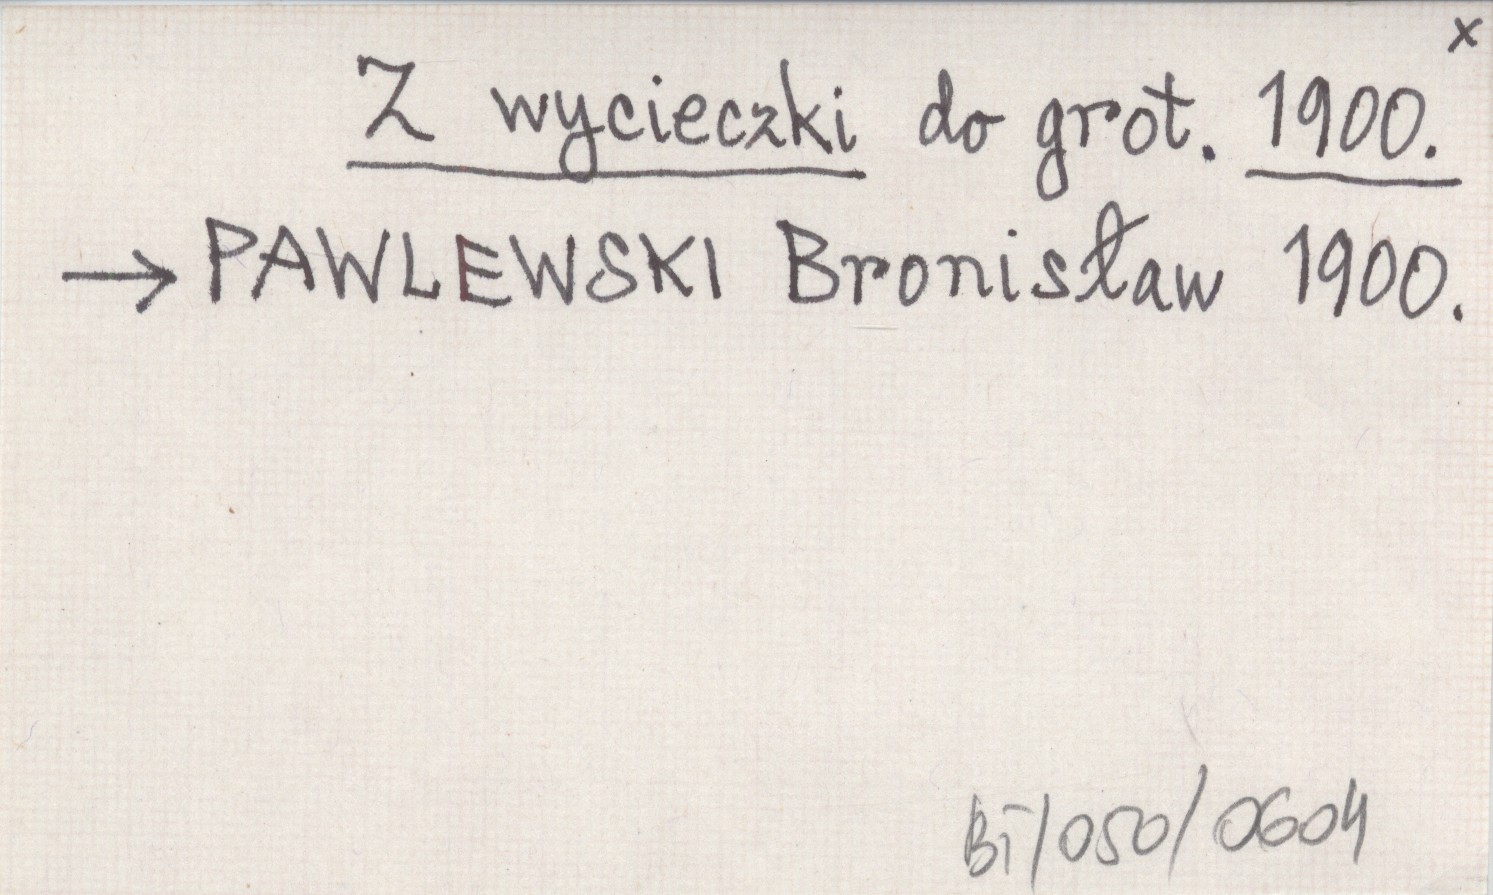 x
Z wycieczki do grot. 1900.
→ PAWLEWSKI Bronisław 1900.
BI/050/0604